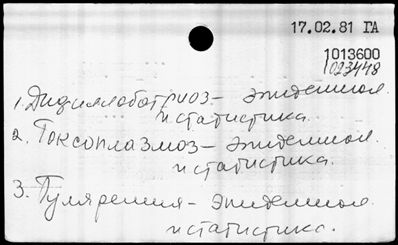 17.02.81 ГА
1013600
1023448
1. Дифиллоботриоз - эпидемиол.
и статистика.
2. Токсоплазмоз - эпидемиол.
и статистика.
3. Туляремия - эпидемиол.
и статистика.